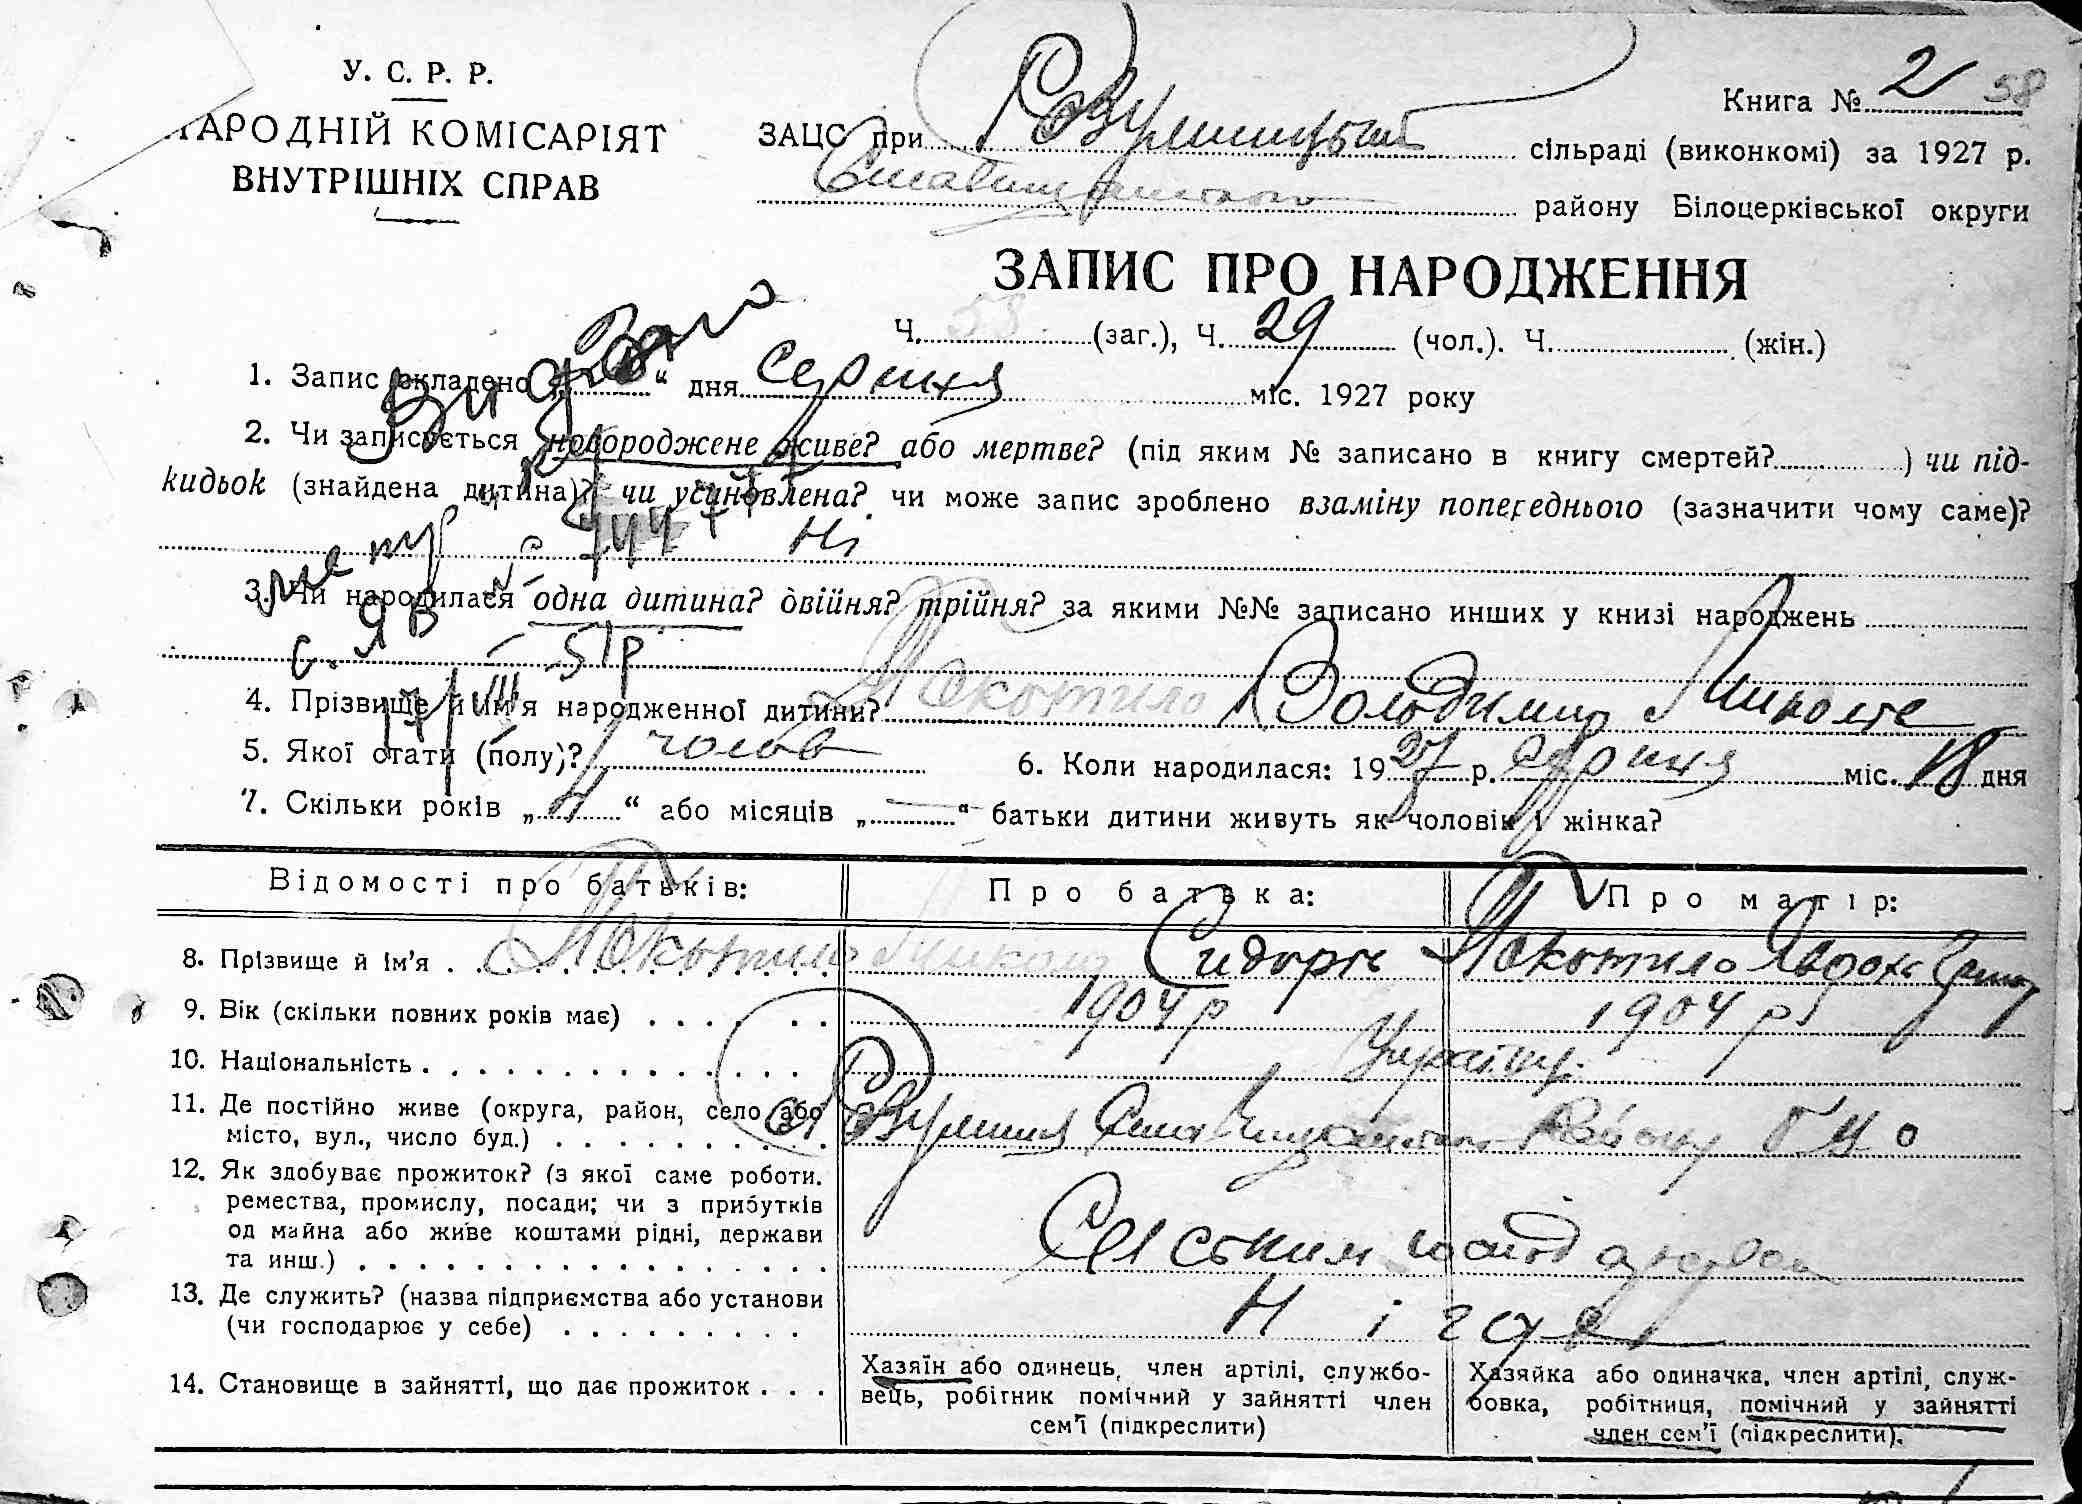 У. С. Р. Р.
НАРОДНІЙ КОМІСАРІЯТ
ВНУТРІШНІХ СПРАВ
Книга № 2 58
ЗАЦС при Розумницькій сільраді (виконкомі) за 1927 р.
Ставищанського району Білоцерківської округи
ЗАПИС ПРО НАРОДЖЕННЯ
Ч. 58 (заг.), Ч. 29 (чол.). Ч. (жін.)
1. Запис складено „ “ дня серпня міс. 1927 року
2. Чи записується новороджене живе? або мертве? (під яким № записано в книгу смертей? ) чи під-
кидьок (знайдена дитина)? чи усиновлена? чи може запис зроблено взаміну попереднього (зазначити чому саме)?
Ні
3. Чи народилася одна дитина? двійня? трійня? за якими №№ записано инших у книзі народжень
4. Прізвище й ім'я народженної дитини? Покотило Володимир Миколе
5. Якої стати (полу)? чолов 6. Коли народилася: 1927 р. серпня міс. 18 дня
7. Скільки років „4“ або місяців „—“ батьки дитини живуть як чоловік і жінка?
Відомості про батьків: Про батька: Про матір:
8. Прізвище й ім'я Покотило Микола Сидорів Покотило Явдоха
9. Вік (скільки повних років має) 1904 р 1904 р
10. Національність Україн.
11. Де постійно живе (округа, район, село або
місто, вул., число буд.) с. Розумниця Ставищанського Району БЦО
12. Як здобуває прожиток? (з якої саме роботи.
ремества, промислу, посади; чи з прибутків
од майна або живе коштами рідні, держави
та инш.) Сельським господарством
13. Де служить? (назва підприємства або установи
(чи господарює у себе) Н і где
14. Становище в зайнятті, що дає прожиток
Хазяїн або одинець, член артілі, службо-
вець, робітник помічний у зайнятті член
сем'ї (підкреслити)
Хазяйка або одиначка, член артілі, служ-
бовка, робітниця, помічний у зайнятті
член сем'ї (підкреслити).